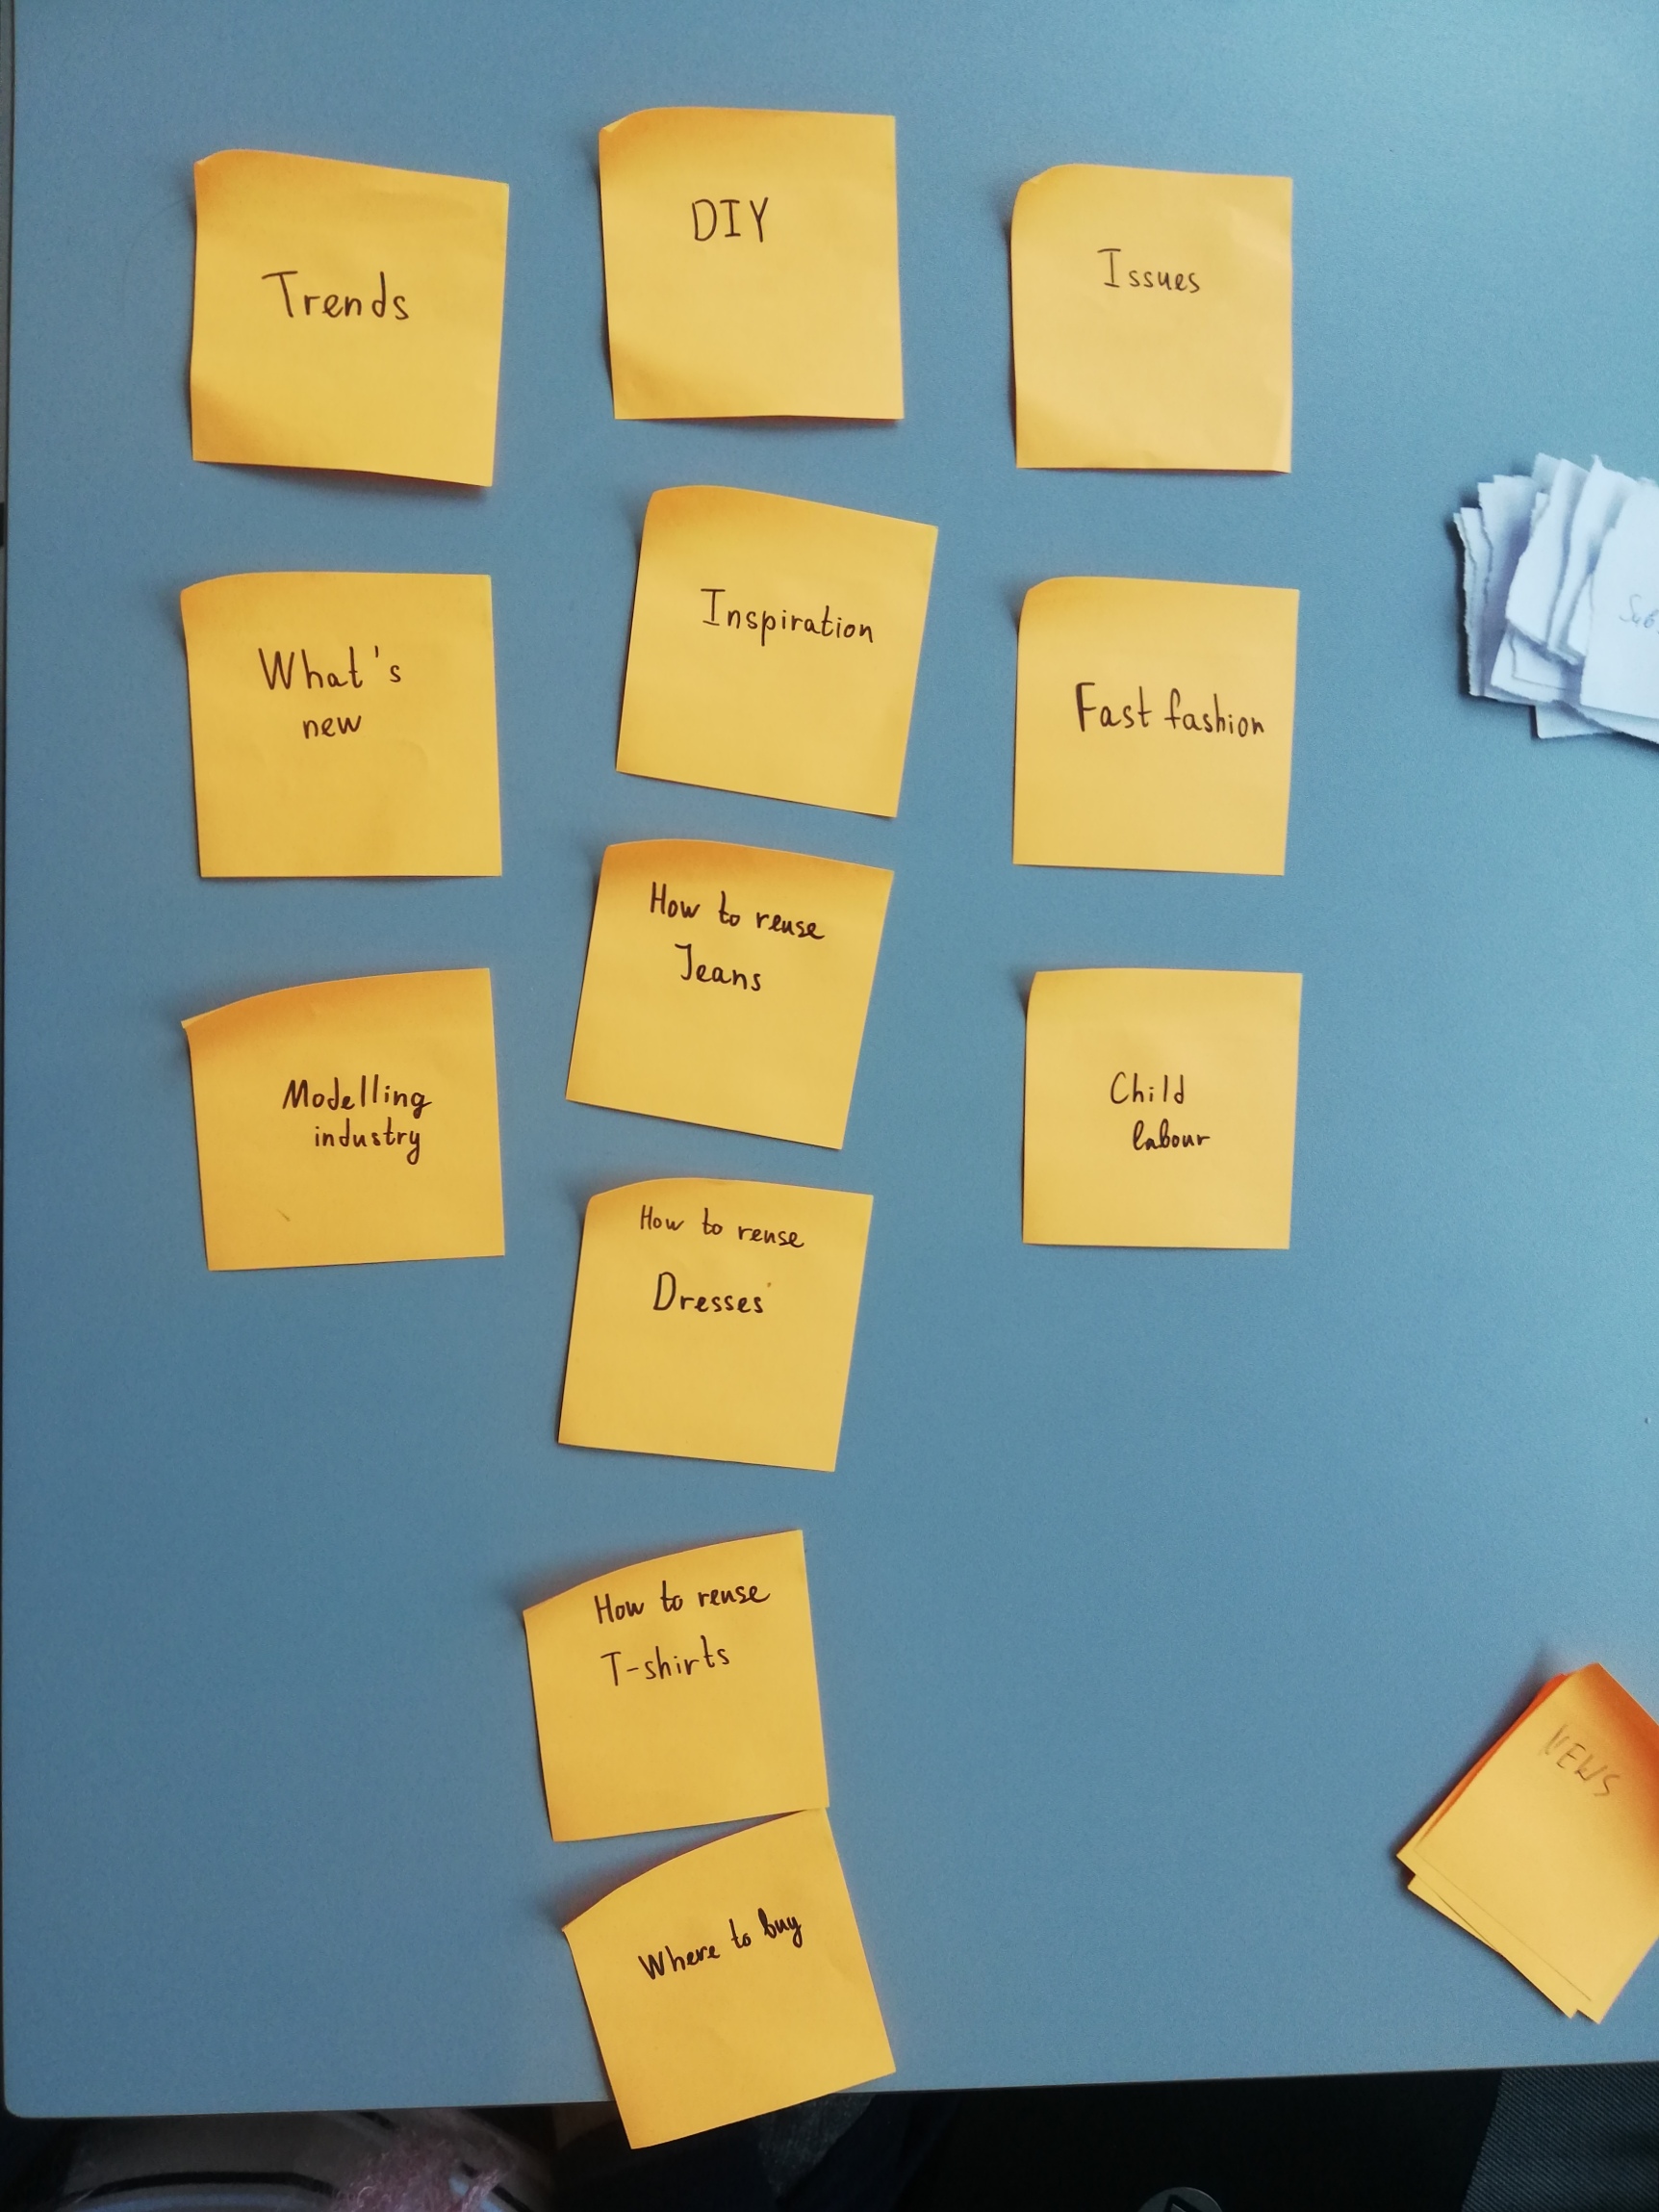 Trends
What's
new
Modelling
industry
DIY
Inspiration
How to reuse
Jeans
How to reuse
Dresses
How to reuse
T-shirts
Where to buy
Issues
Fast fashion
Child
labour
NEWS